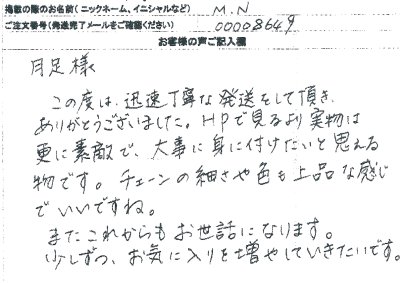 掲載の際のお名前(ニックネーム、イニシャルなど) M.N
ご注文番号(発送完了メールをご確認ください) 00008649
お客様の声ご記入欄
月足様
この度は、迅速丁寧な発送をして頂き
ありがとうございました。HPで見るより実物は
更に素敵で、大事に身に付けたいと思える
物です。チェーンの細さや色も上品な感じ
でいいですね。
またこれからもお世話になります。
少しずつ、お気に入りを増やしていきたいです。